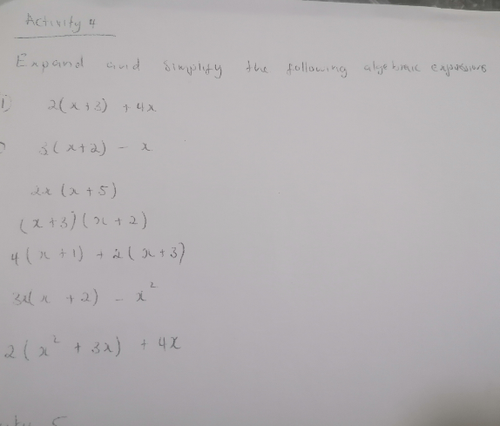 Activity 4
Expand and simplify the following algebraic expressions
1) 2(x+3) + 4x
3(x+2) - x
2x(x+5)
(x+3)(x+2)
4(x+1) + 2(x+3)
3x(x+2) - x²
2(x² + 3x) + 4x